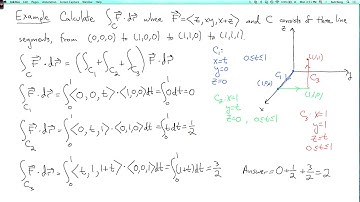 Example Calculate ∫_C F⃗·dr⃗ where F⃗=<z, xy, x+z> and C consists of three line
segments, from (0,0,0) to (1,0,0) to (1,1,0) to (1,1,1).
∫_C F⃗·dr⃗ = (∫_C₁ + ∫_C₂ + ∫_C₃) F⃗·dr⃗
∫_C₁ F⃗·dr⃗ = ∫₀¹ <0, 0, t>·<1,0,0>dt = ∫₀¹ 0dt = 0
∫_C₂ F⃗·dr⃗ = ∫₀¹ <0, t, 1>·<0,1,0>dt = ∫₀¹ t dt = 1/2
∫_C₃ F⃗·dr⃗ = ∫₀¹ <t, 1, 1+t>·<0,0,1>dt = ∫₀¹ (1+t)dt = 3/2
C₁:
x=t 0≤t≤1
y=0
z=0
C₂: x=1
y=t
z=0, 0≤t≤1
z
y
x
(1,1,1)
C₃
C₁
(1,0,0)
C₂
(1,1,0)
C₃: x=1
y=1
z=t
0≤t≤1
Answer = 0 + 1/2 + 3/2 = 2